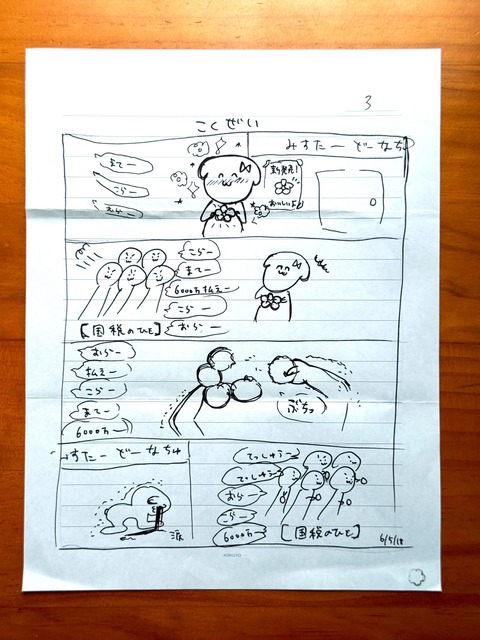 3
こくぜい
みすたー どーなちゅ
まてー
こらー
おらー
新発売!
おいしいよ
こらー
まてー
6000万払えー
こらー
おらー
[国税のひと]
おらー
払えー
こらー
まてー
6000万ー
ぶちっ
みすたー どーなちゅ
涙
てっしゅうー
てっしゅうー
おらー
こらー
6000万ー
[国税のひと]
6/5/18
KOKUYO